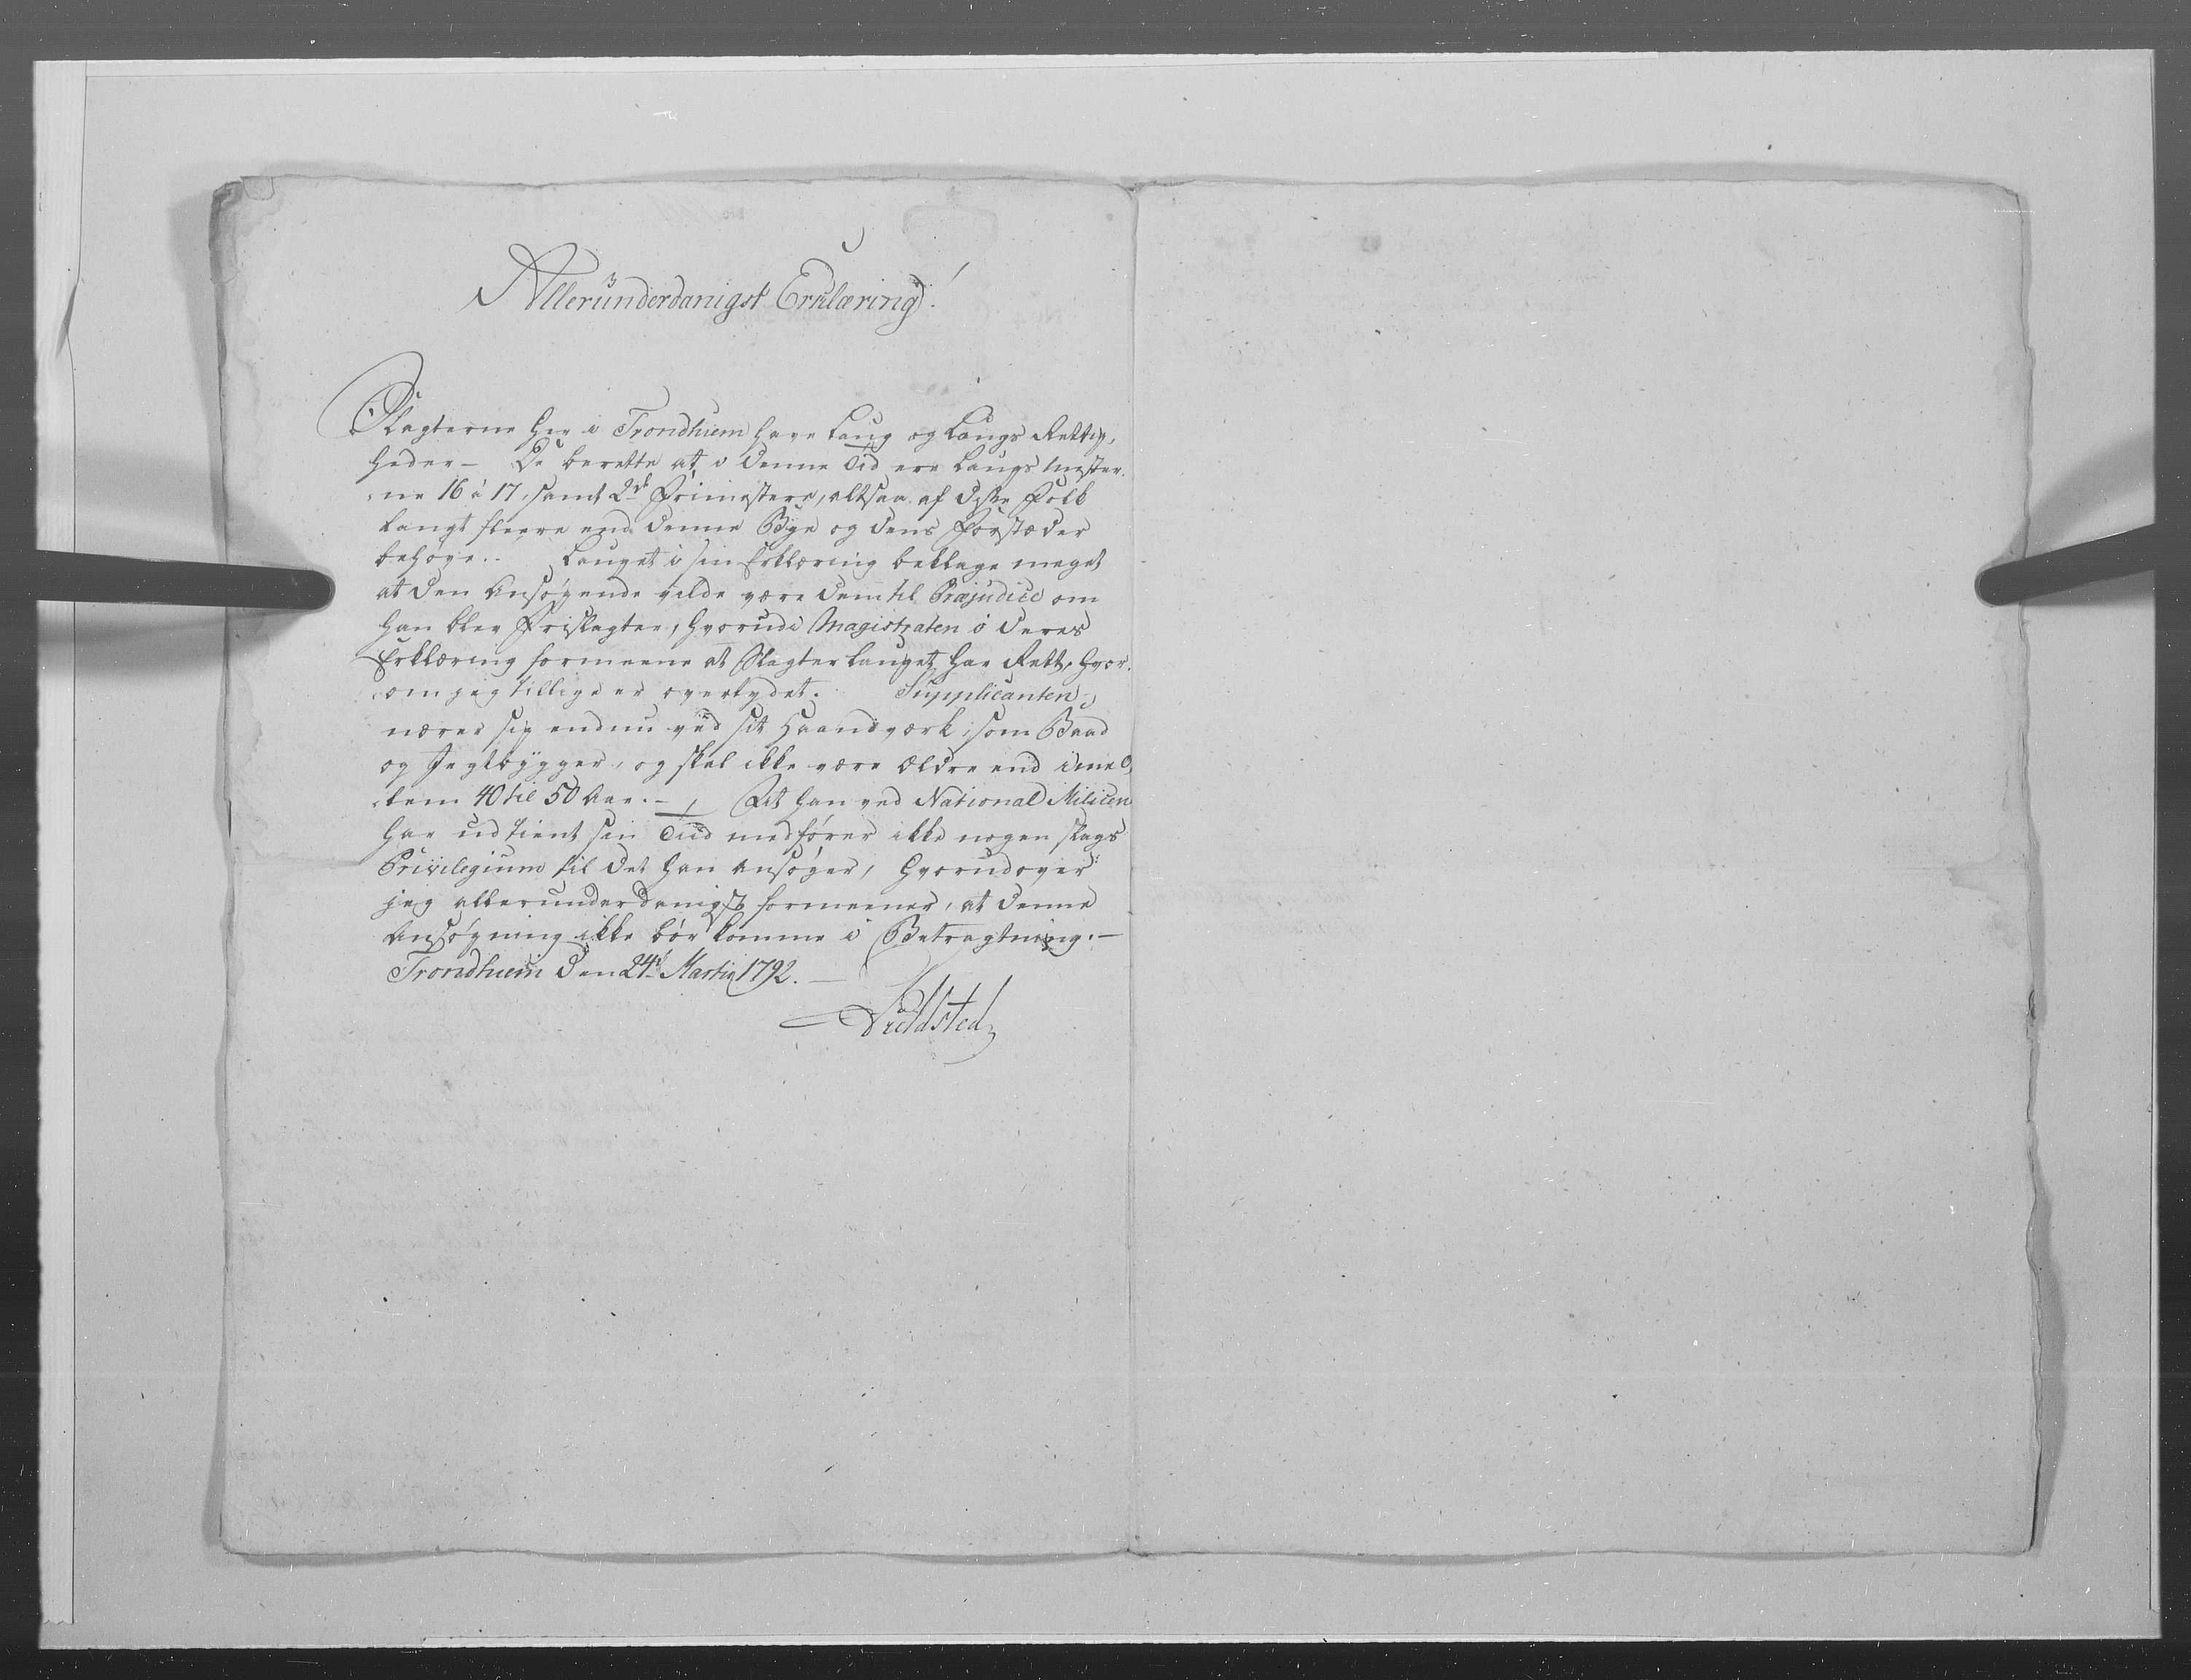 Allerunderdanigst Erklæring!
Slagterne her i Trondhiem have Laug og Laugs Rettig,
heder – De berette at i denne Tid ere Laugs Mester,
ne 16 à 17, samt 2de Frimestere, altsaa af dyske Folk
langt fleere end denne Bye og dens Forstæder
behøve. Lauget i sin Erklæring beklage meget
at den Ansøgende vilde være dem til Præjudice om
han blev Frislagter, hvorudi Magistraten i deres
Erklæring formeene at Slagterlauget har Rett, hvor,
om jeg tillige er overtydet. Supplicanten
nærer sig endnu ved sit Haandværk, som Baad
og Jegtbygger, og skal ikke være ældre end imel,
lem 40 til 50 Aar. – At han ved National Milicen
har udtient sin Tiid medfører ikke nogen slags
Privilegium til det han ansøger, hvorudover
jeg allerunderdanigst formeener, at denne
Ansøgning ikke bør komme i Betragtning. –
Trondhiem den 24de Martii 1792. –